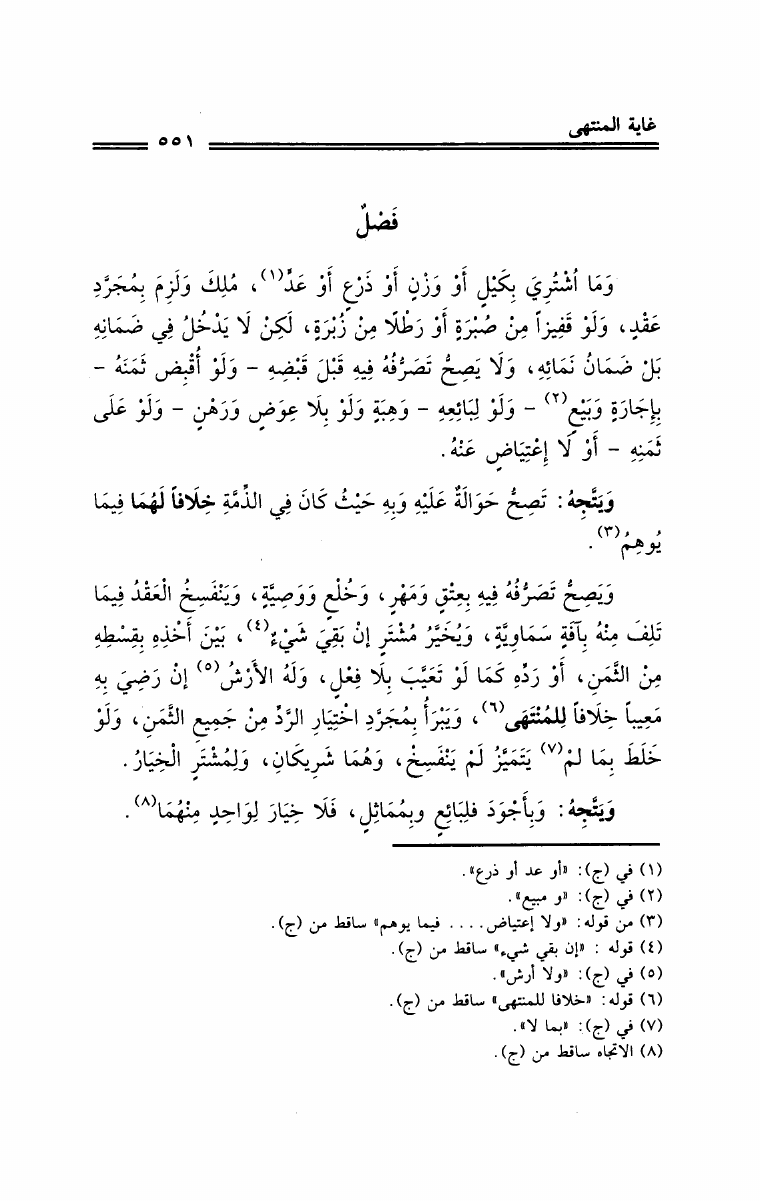 غاية المنتهى
٥٥١
فَصْلٌ
وَمَا اُشْتُرِيَ بِكَيْلٍ أَوْ وَزْنٍ أَوْ ذَرْعٍ أَوْ عَدٍّ(١)، مُلِكَ وَلَزِمَ بِمُجَرَّدِ
عَقْدٍ، وَلَوْ قَفِيزاً مِنْ صُبْرَةٍ أَوْ رَطْلًا مِنْ زُبْرَةٍ، لَكِنْ لَا يَدْخُلُ فِي ضَمَانِهِ
بَلْ ضَمَانُ نَمَائِهِ، وَلَا يَصِحُّ تَصَرُّفُهُ فِيهِ قَبْلَ قَبْضِهِ – وَلَوْ أُقْبِضَ ثَمَنَهُ –
بِإِجَارَةٍ وَبَيْعٍ(٢) – وَلَوْ لِبَائِعِهِ – وَهِبَةٍ وَلَوْ بِلَا عِوَضٍ وَرَهْنٍ – وَلَوْ عَلَى
ثَمَنِهِ – أَوْ لَا إِعْتِيَاضٍ عَنْهُ.
وَيَتَّجِهُ: تَصِحُّ حَوَالَةٌ عَلَيْهِ وَبِهِ حَيْثُ كَانَ فِي الذِّمَّةِ خِلَافاً لَهُمَا فِيمَا
يُوهِمُ(٣).
وَيَصِحُّ تَصَرُّفُهُ فِيهِ بِعِتْقٍ وَمَهْرٍ، وَخُلْعٍ وَوَصِيَّةٍ، وَيَنْفَسِخُ الْعَقْدُ فِيمَا
تَلِفَ مِنْهُ بِآفَةٍ سَمَاوِيَّةٍ، وَيُخَيَّرُ مُشْتَرٍ إنْ بَقِيَ شَيْءٌ(٤)، بَيْنَ أَخْذِهِ بِقِسْطِهِ
مِنْ الثَّمَنِ، أَوْ رَدِّهِ كَمَا لَوْ تَعَيَّبَ بِلَا فِعْلٍ، وَلَهُ الأَرْشُ(٥) إنْ رَضِيَ بِهِ
مَعِيباً خِلَافاً لِلمُنْتَهَى(٦)، وَيَبْرَأُ بِمُجَرَّدِ اخْتِيَارِ الرَّدِّ مِنْ جَمِيعِ الثَّمَنِ، وَلَوْ
خَلَطَ بِمَا لمْ(٧) يَتَمَيَّزُ لَمْ يَنْفَسِخْ، وَهُمَا شَرِيكَانِ، وَلِمُشْتَرٍ الْخِيَارُ.
وَيَتَّجِهُ: وَبِأَجْوَدَ فلِبَائِعٍ وبِمُمَاثِلٍ، فَلَا خِيَارَ لِوَاحِدٍ مِنْهُمَا(٨).
(١) في (ج): «أو عد أو ذرع».
(٢) في (ج): «و مبيع».
(٣) من قوله: «ولا إعتياض.... فيما يوهم» ساقط من (ج).
(٤) قوله : «إن بقي شيء» ساقط من (ج).
(٥) في (ج): «ولا أرش».
(٦) قوله: «خلافا للمنتهى» ساقط من (ج).
(٧) في (ج): «بما لا».
(٨) الاتجاه ساقط من (ج).